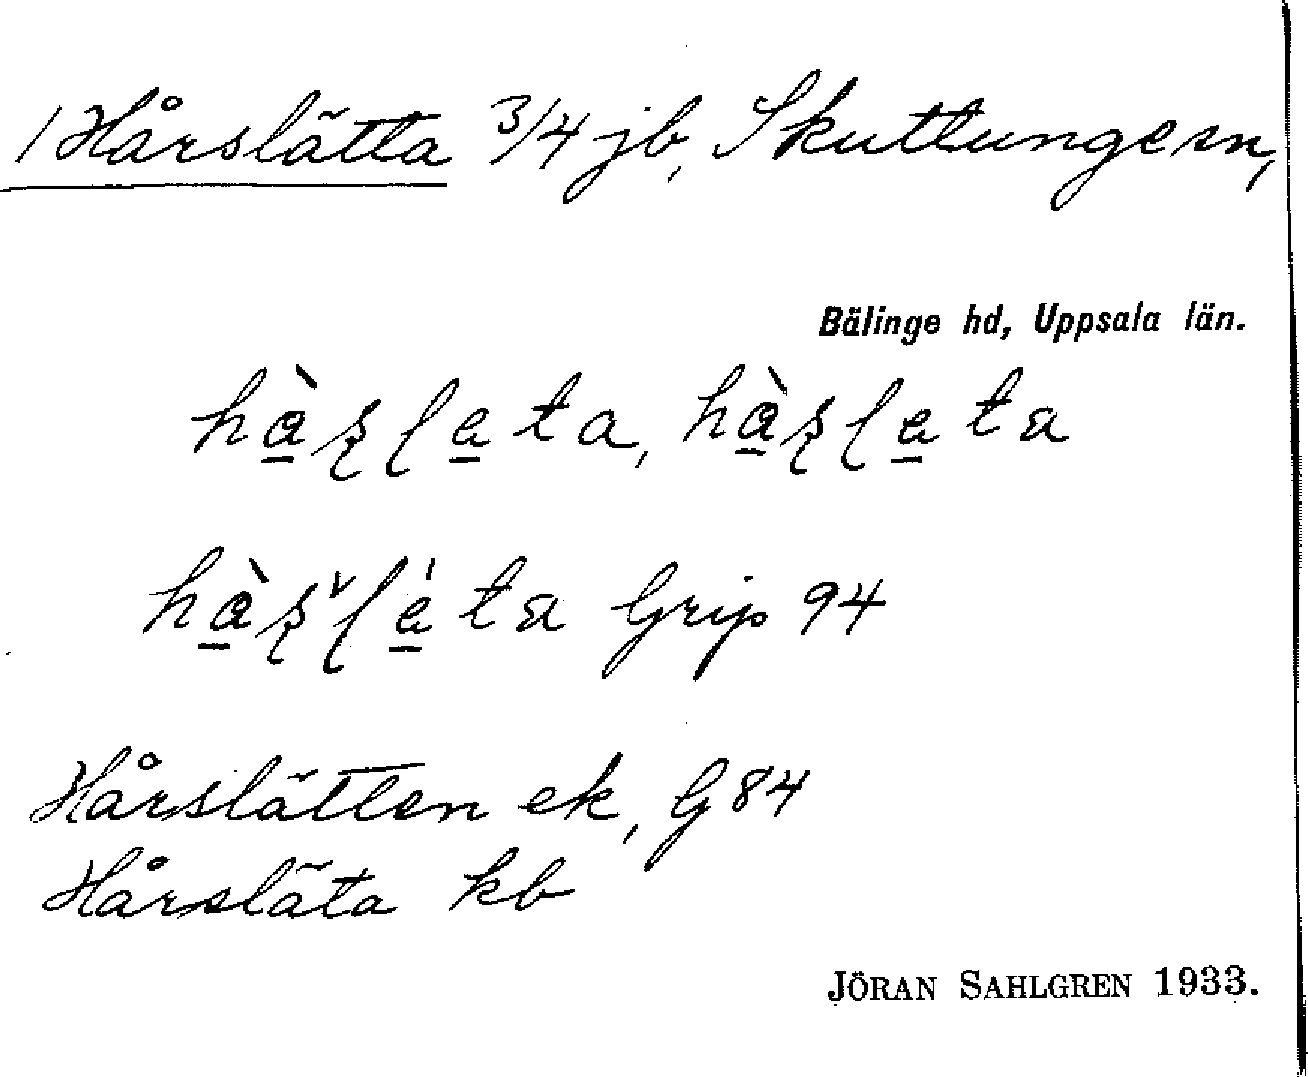 1 Hårslätta 3/4 jb, Skuttunge sn,
Bälinge hd, Uppsala län.
Grip 94
Hårslätten ek, G 84
Hårsläta kb
JÖRAN SAHLGREN 1933.